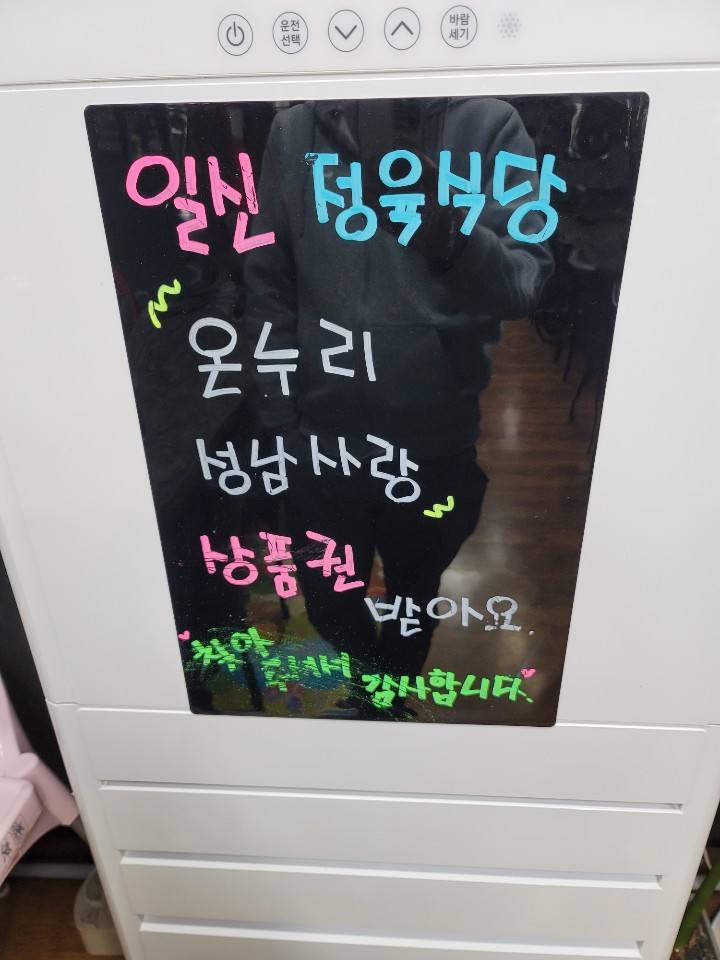 운전
선택
바람
세기
일신 정육식당
온누리
성남사랑
상품권
받아요.
찾아
주셔서
감사합니다.